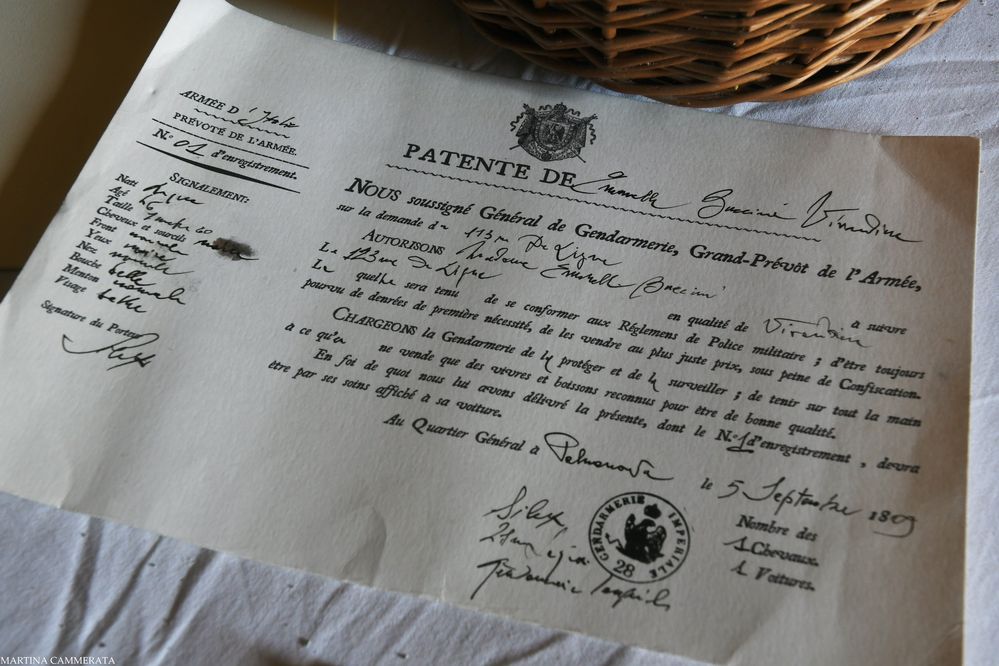 ARMÉE D'Italie
PRÉVOTÉ DE L'ARMÉE.
N.° 01 d'enregistrement.
SIGNALEMENT:
Nati
Agé 26
Taille
Cheveux et sourcils
Front
Yeux
Nez
Bouche belle
Menton
Visage belle
Signature du Porteur
PATENTE DE Emanuelle Buccini Vivandière
NOUS soussigné Général de Gendarmerie, Grand-Prévôt de l'Armée,
sur la demande du 113m De Ligne
AUTORISONS Madame Emanuelle Buccini
en qualité de Vivandière à suivre
Le 113me de Ligne
La quelle sera tenu de se conformer aux Réglemens de Police militaire; d'être toujours
pourvu de denrées de première nécessité, de les vendre au plus juste prix, sous peine de Confiscation.
CHARGEONS la Gendarmerie de la protéger et de la surveiller; de tenir sur tout la main
à ce qu'on ne vende que des vivres et boissons reconnus pour être de bonne qualité.
En foi de quoi nous lui avons délivré la présente, dont le N.° 1 d'enregistrement, devra
être par ses soins affiché à sa voiture.
Au Quartier Général à Palmanova le 5 Septembre 1809
GENDARMERIE IMPERIALE
28
Nombre des
1 Chevaux.
1 Voitures.
MARTINA CAMMERATA